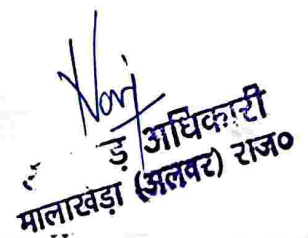 ड़ अधिकारी
मालाखेड़ा (अलवर) राज०